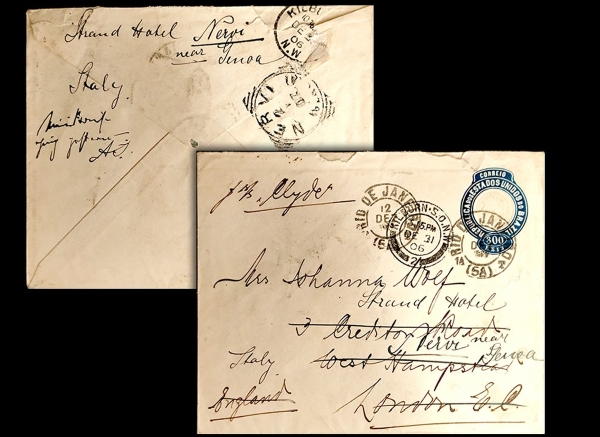 Strand Hotel Nervi
near Genoa
Italy
KILBU
DE
06
N.W
NERVI
p.p. "Clyde"
RIO DE JANE
12
DE
(5A)
KILBURN·S.O.N.W
15PM
DE 31
06
CORREIO
REPUBLICA DOS ESTADOS UNIDOS DO BRAZIL
300
REIS
RIO DE JAN
(5A)
Mrs Johanna Wolf
Strand Hotel
3 Creditor Road
Nervi near
Genoa
Italy West Hampstead
England London E.C.